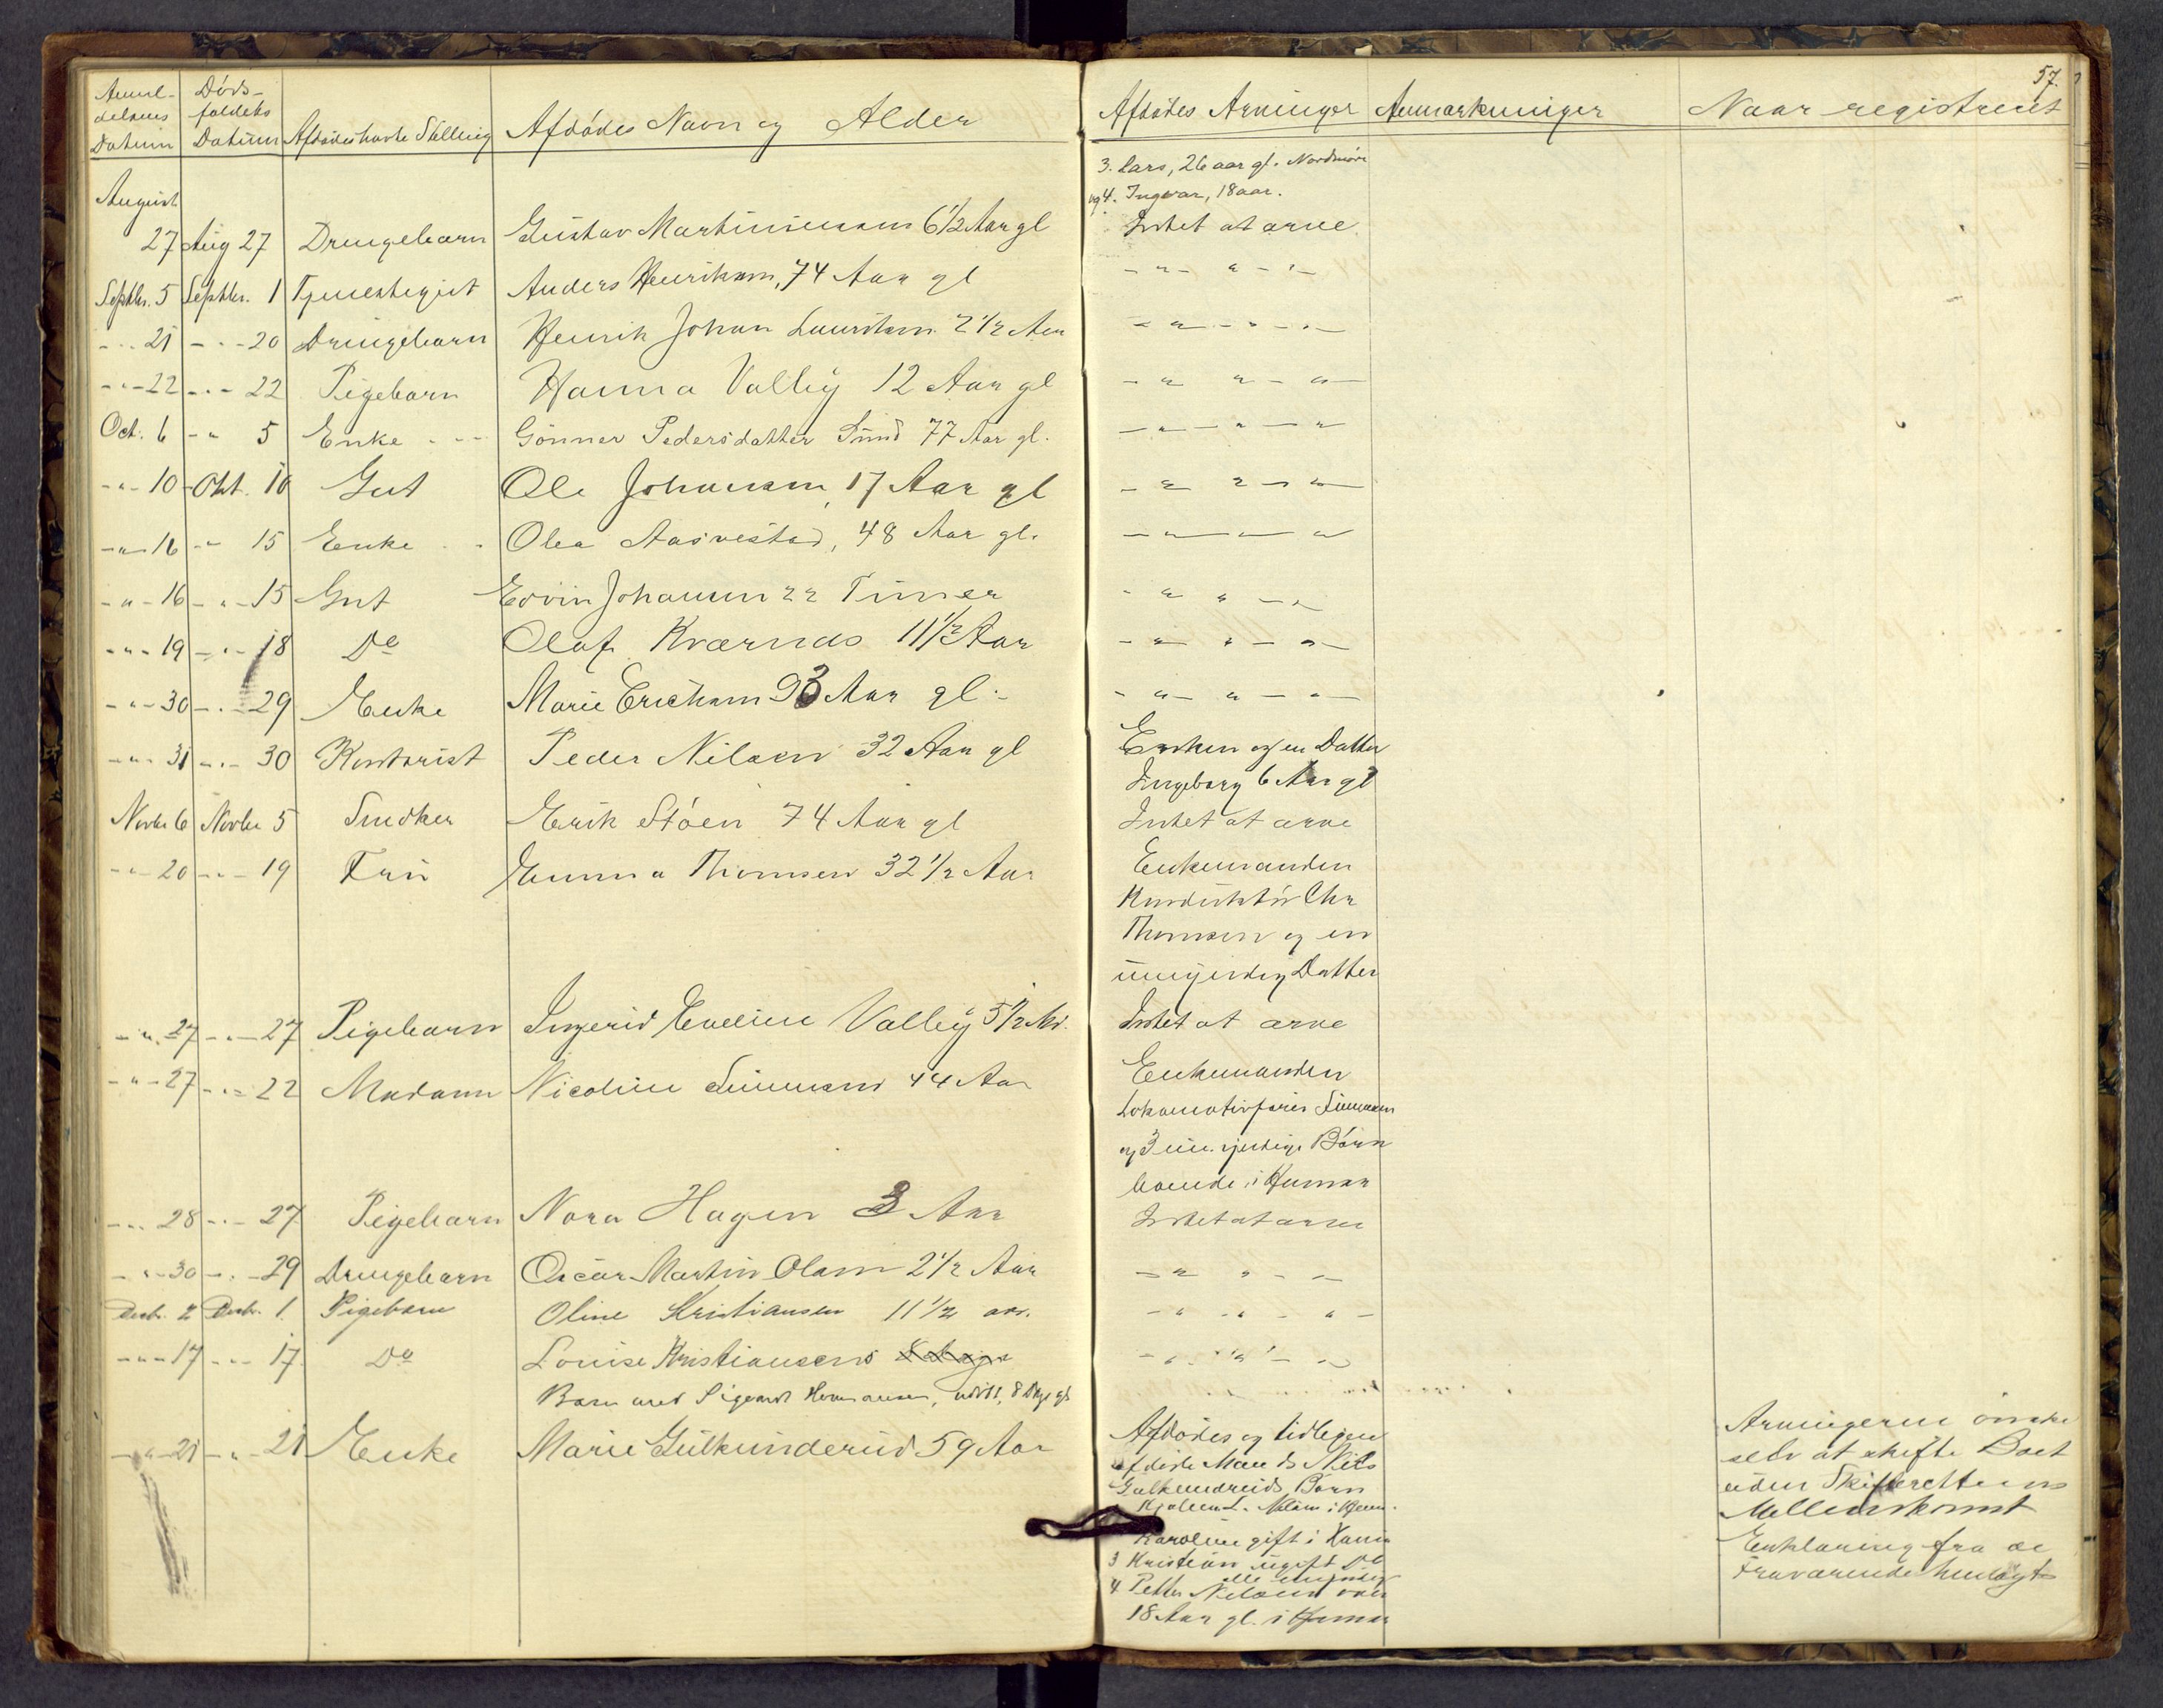 57.
Anmel- Døds-
delsens faldets
Datum Datum Afdødes havte Stilling Afdødes Navn og Alder Afdødes Arvinger Anmærkninger Naar registreret
3. Lars, 26 aar gl. Nordmøre
og 4. Ingvar, 18 aar.
August
27 Aug 27 Drengebarn Gustav Martiniussen 6 1/2 Aar gl Intet at arve
Septbr. 5 Septbr. 1 Anders Henriksen, 74 Aar gl - " - " - " -
- " - 21 - " - 20 Drengebarn Henrik Johan Lauritsen 2 1/2 Aar - " - " - " -
- " - 22 - " - 22 Pigebarn Hanna Valley 12 Aar gl - " - " - " -
Oct. 6 - " 5 Enke - - - Gönner Pedersdatter Sund 77 Aar gl. - " - " - "
- " - 10 - Okt. 10 Gut Ole Johansen, 17 Aar gl - " - " - " -
- " - 16 - " 15 Enke - - Olea Aasvestad, 48 Aar gl. - " - "
- " - 16 - " - 15 Gut Edvin Johansen 22 Timer - " - " -
- " - 19 - " - 18 Do Olaf Kværnaas 11 1/2 Aar - " - " - " -
- " - 30 - " - 29 Enke Marie Ericksen 93 Aar gl. - " - " - " -
- " - 31 - " - 30 Kontorist Peder Nilsen 32 Aar gl Enken og en Datter
Ingeborg 6 Aar gl
Novbr 6 Novbr 5 Snedker Erik Støen 74 Aar gl Intet at arve
- " - 20 - " - 19 Fru Emma Thomsen 32 1/2 Aar Enkemanden
Konduktør Chr
Thomsen og en
umyndig Datter
- " - 27 - " - 27 Pigebarn Ingerid Eveline Valley 5 1/2 Md. Intet at arve
- " - 27 - " - 22 Madam Nicoline 44 Aar Enkemanden
Lokomotivfører
og 3 umyndige Børn
boende i Hamar
- " - 28 - " - 27 Pigebarn Nora Hagen 3 Aar Intet at arve
- " - 30 - " - 29 Drengebarn Oscar Martin Olsen 2 1/2 Aar - " - " - -
Decbr. 2 Decbr. 1. Pigebarn Oline Kristiansen 11 1/2 aar. - " - " - " -
- " - 17 - " - 17. Do Louise Kristiansens - " - " - "
Barn med Sigvard Hermansen, udøbt, 8 Dage gl
- " - 21 - " - 21 Enke Marie Gulkunderud 59 Aar Afdødes og tidligere Arvingerne ønske
afdøde Mands Nils selv at skifte Boet
Gulkunderuds Børn uden Skifterettens
Mellemkomst
Karoline gift i Erklæring fra de
3 Kristian ugift Do Fraværende henlagt
alle myndig
4 Petter Nilsen over
18 Aar gl. i Hamar